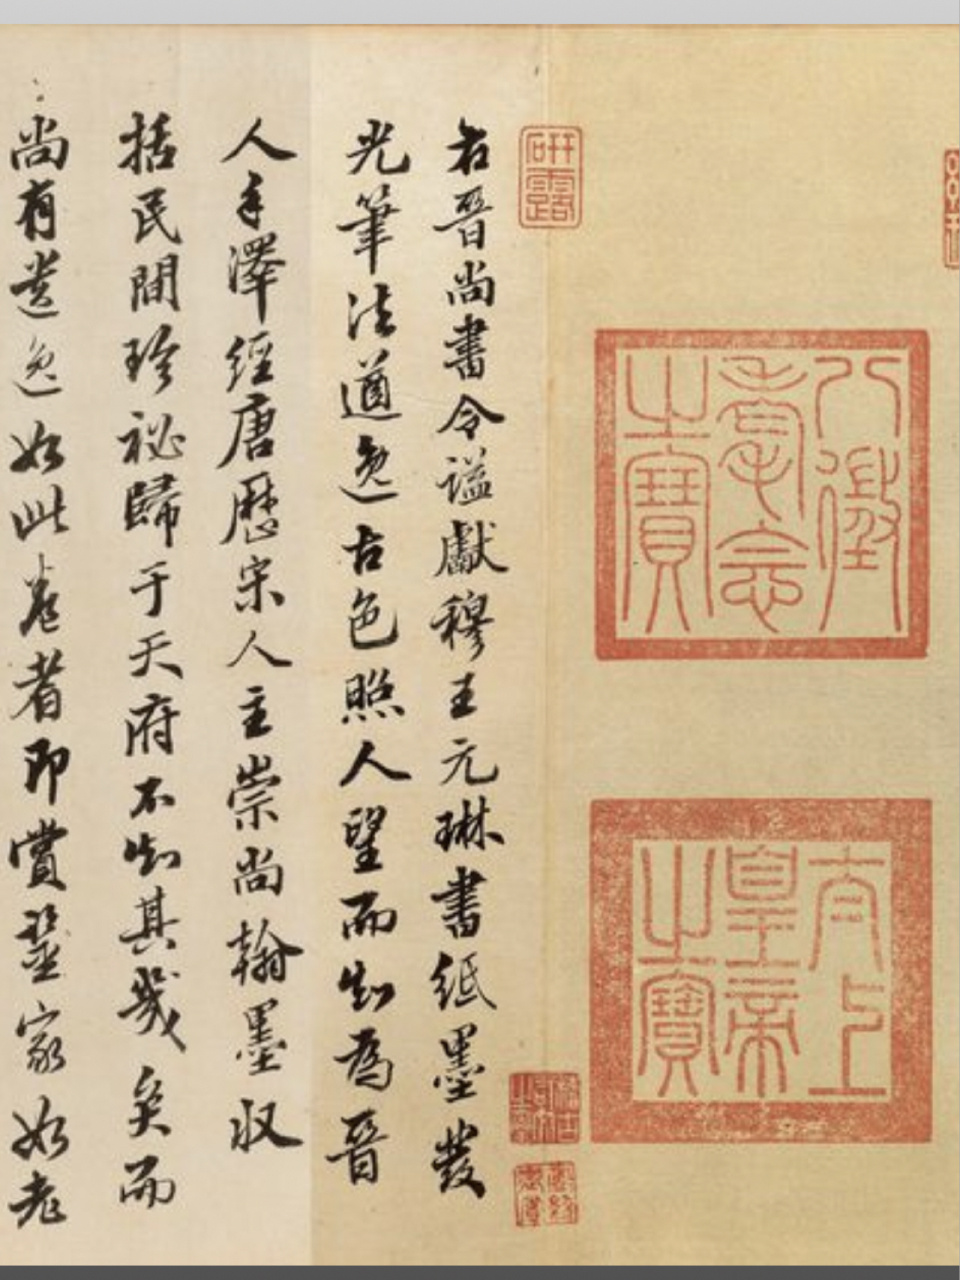 八徵
耄念
之寶
太上
皇帝
之寶
研露
右晉尚書令謚獻穆王元琳書紙墨發
光筆法遒逸古色照人望而知為晉
人手澤經唐歷宋人主崇尚翰墨収
括民間珍祕歸于天府不知其幾矣而
尚有遺逸如此卷者即賞鑒家如老